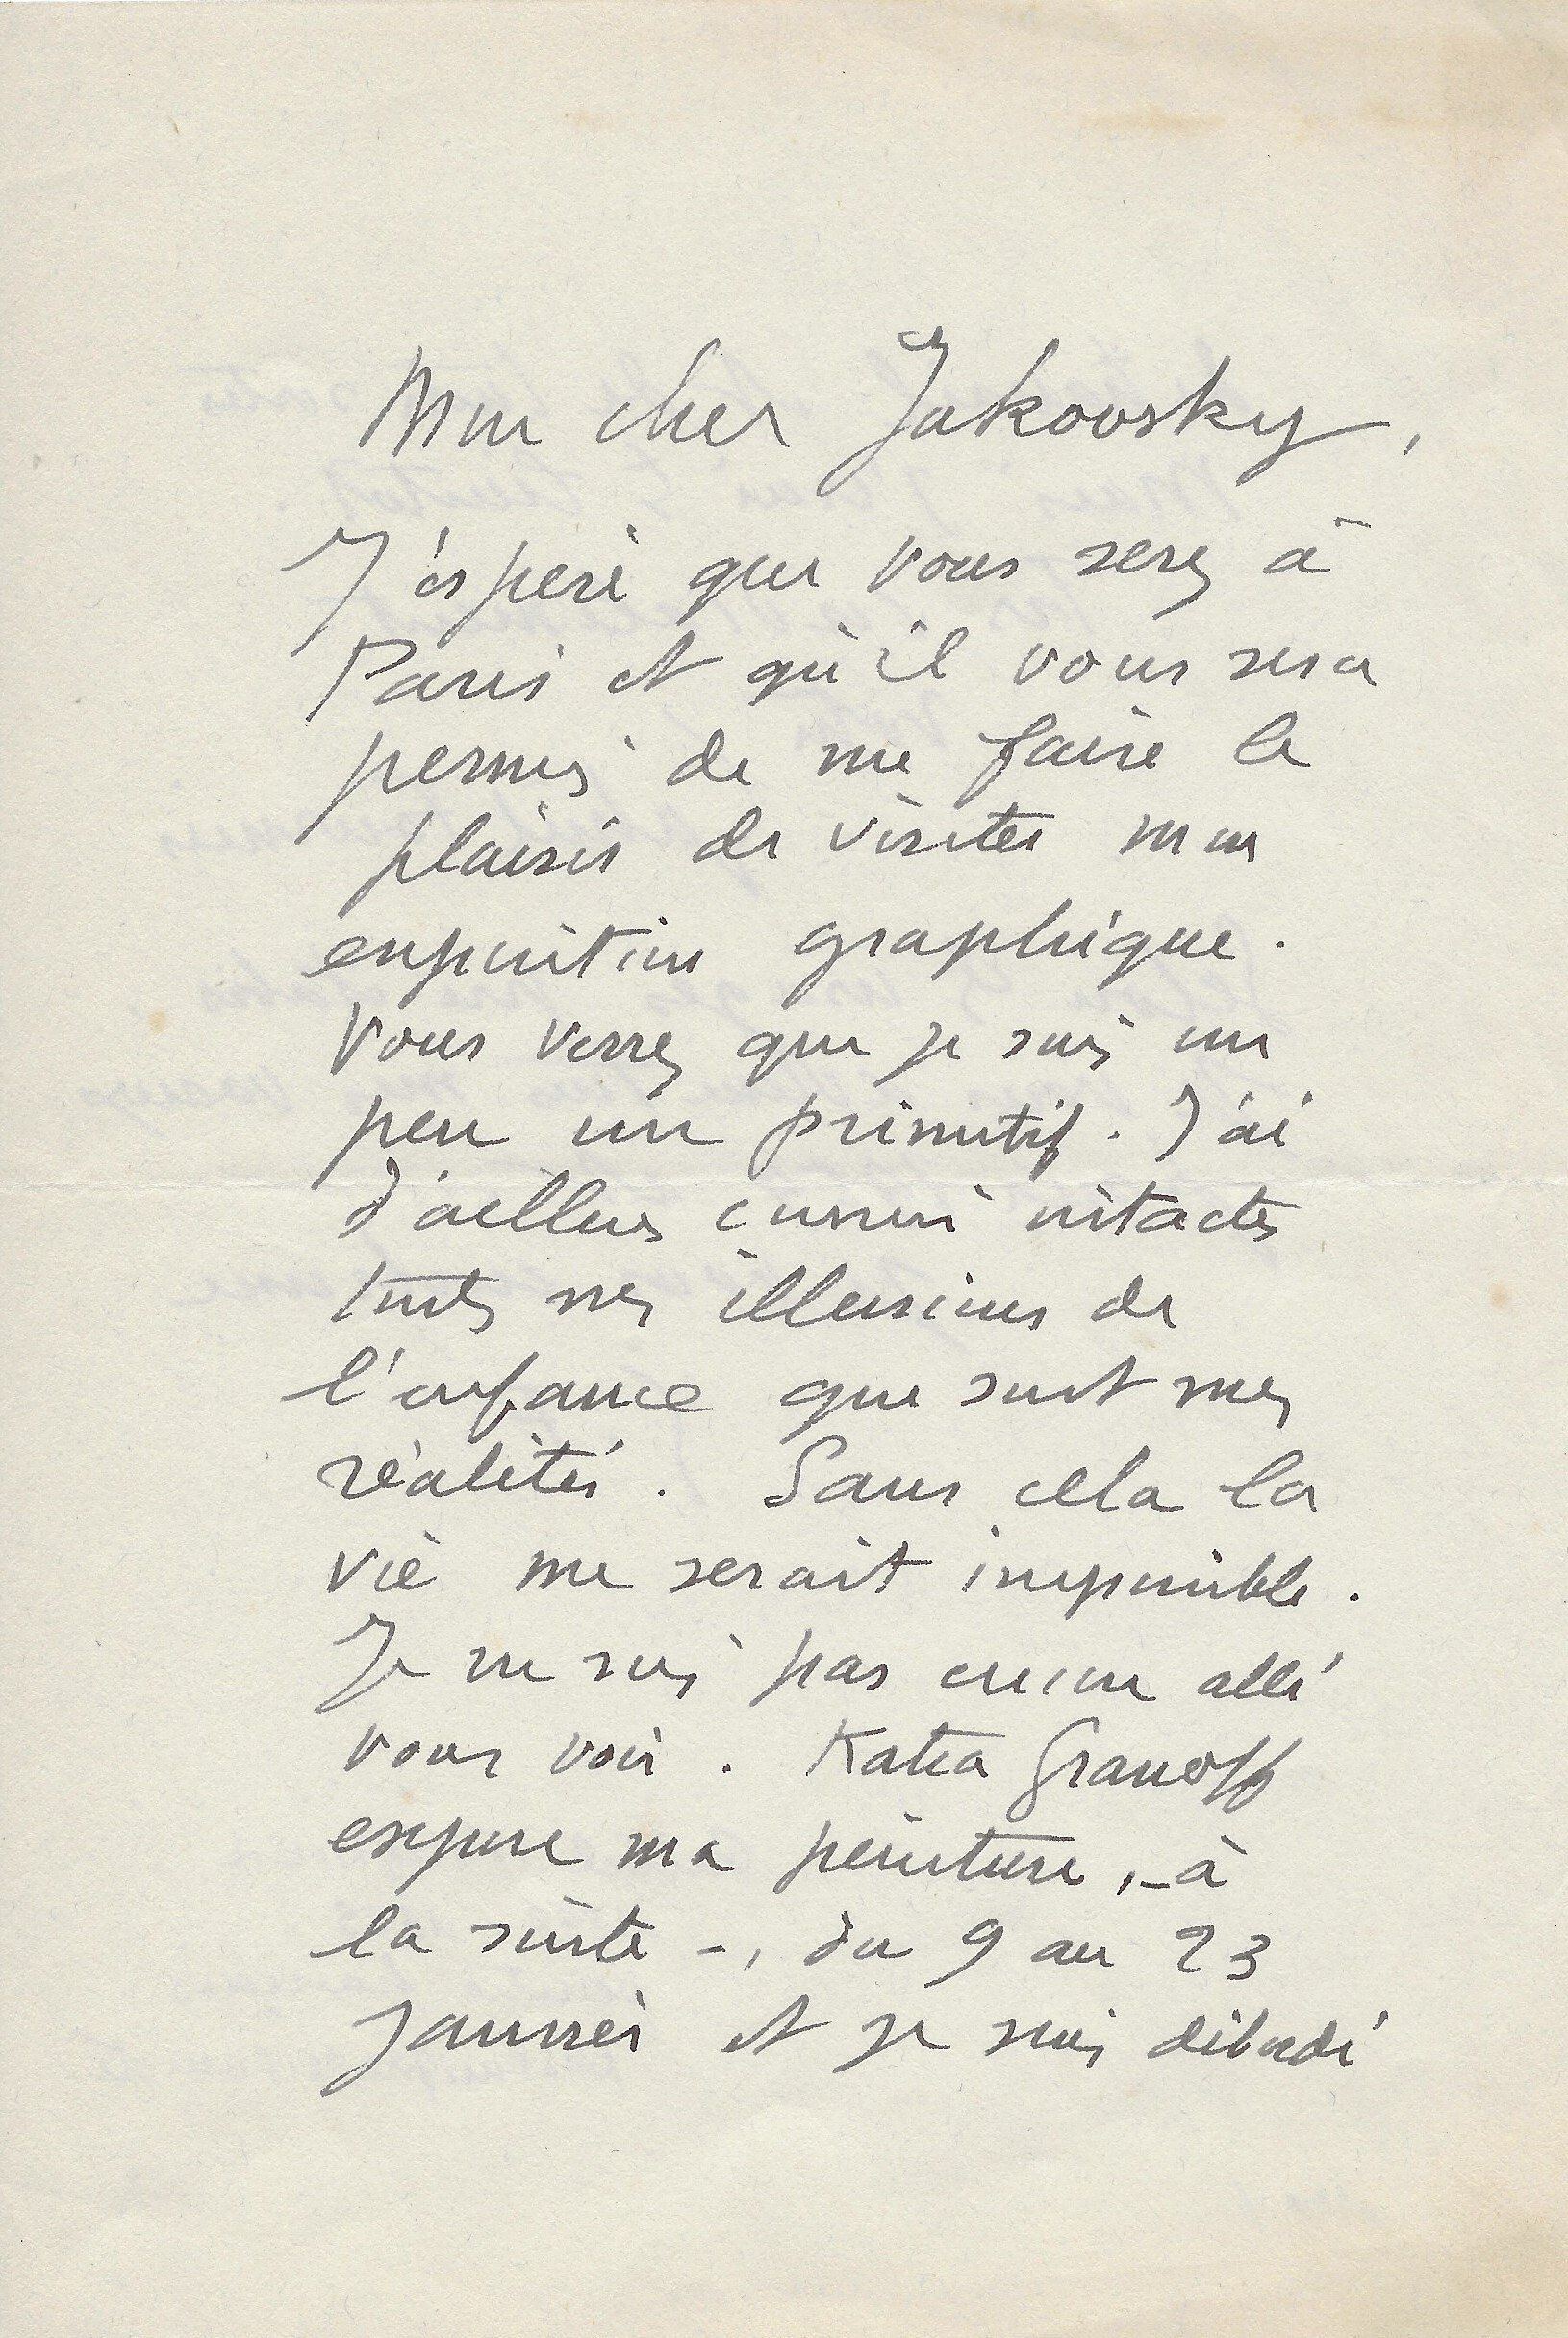 Mon cher Jakovsky,
J'espère que vous serez à
Paris et qu'il vous sera
permis de me faire le
plaisir de visiter mon
exposition graphique.
Vous verrez que je suis un
peu un primitif. J'ai
d'ailleurs conservé intactes
toutes mes illusions de
l'enfance que sont mes
réalités. Sans cela la
vie me serait impossible.
Je ne suis pas encore allé
vous voir. Katia Granoff
expose ma peinture, - à
la suite -, du 9 au 23
janvier et je suis débordé